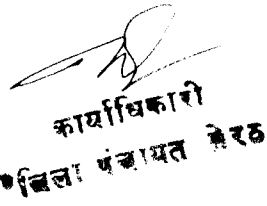 कार्याधिकारी
जिला पंचायत मेरठ